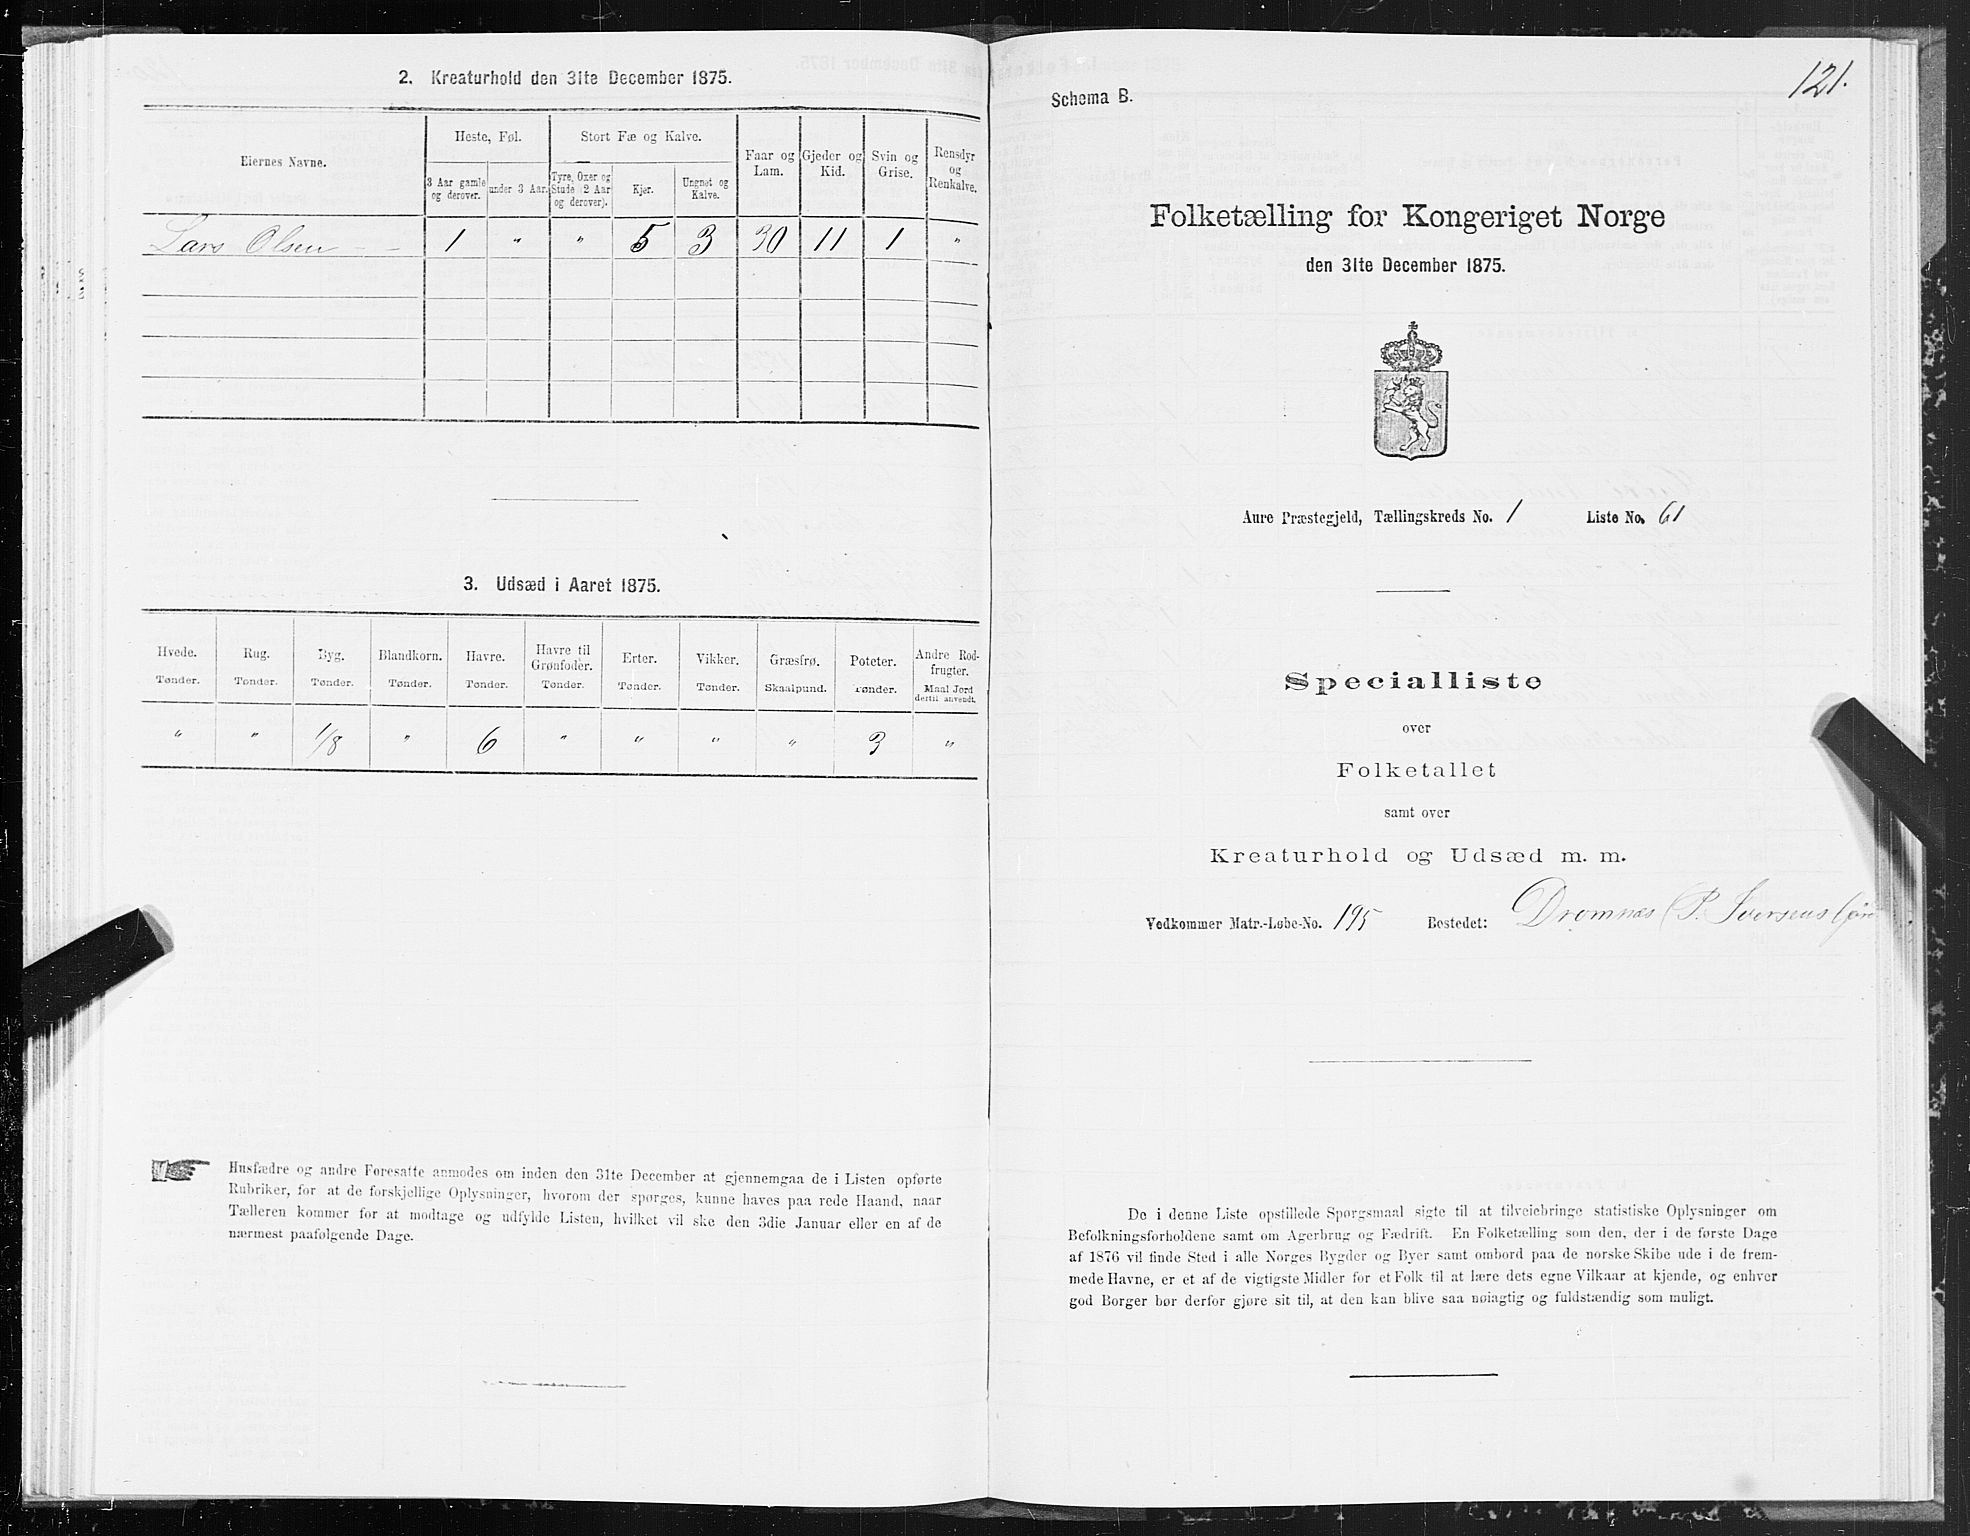 2. Kreaturhold den 31te December 1875.
Eiernes Navne.
Heste, Føl.
Stort Fæ og Kalve.
Faar og Lam.
Gjeder og Kid.
Svin og Grise.
Rensdyr og Renkalve.
3 Aar gamle og derover.
under 3 Aar.
Tyre, Oxer og Stude (2 Aar og derover).
Kjer.
Ungnøt og Kalve.
Lars Olsen - - 1 " " 5 3 30 11 1 "
3. Udsæd i Aaret 1875.
Hvede. Rug. Byg. Blandkorn. Havre. Havre til Grønfoder. Erter. Vikker. Græsfrø. Poteter. Andre Rodfrugter.
Tønder. Tønder. Tønder. Tønder. Tønder. Tønder. Tønder. Tønder. Skaalpund. Tønder. Maal Jord dertil anvendt.
" " 1/8 " 6 " " " " 3 "
Husfædre og andre Foresatte anmodes om inden den 31te December at gjennemgaa de i Listen opførte
Rubriker, for at de forskjellige Oplysninger, hvorom der spørges, kunne haves paa rede Haand, naar
Tælleren kommer for at modtage og udfylde Listen, hvilket vil ske den 3die Januar eller en af de
nærmest paafølgende Dage.
121.
Schema B.
Folketælling for Kongeriget Norge
den 31te December 1875.
Aure Præstegjeld, Tællingskreds No. 1 Liste No. 61
Specialliste
over
Folketallet
samt over
Kreaturhold og Udsæd m. m.
Vedkommer Matr.-Løbe-No. 195 Bostedet: Dromnæs (P. Iversens
De i denne Liste opstillede Spørgsmaal sigte til at tilveiebringe statistiske Oplysninger om
Befolkningsforholdene samt om Agerbrug og Fædrift. En Folketælling som den, der i de første Dage
af 1876 vil finde Sted i alle Norges Bygder og Byer samt ombord paa de norske Skibe ude i de frem-
mede Havne, er et af de vigtigste Midler for et Folk til at lære dets egne Vilkaar at kjende, og enhver
god Borger bør derfor gjøre sit til, at den kan blive saa nøiagtig og fuldstændig som muligt.